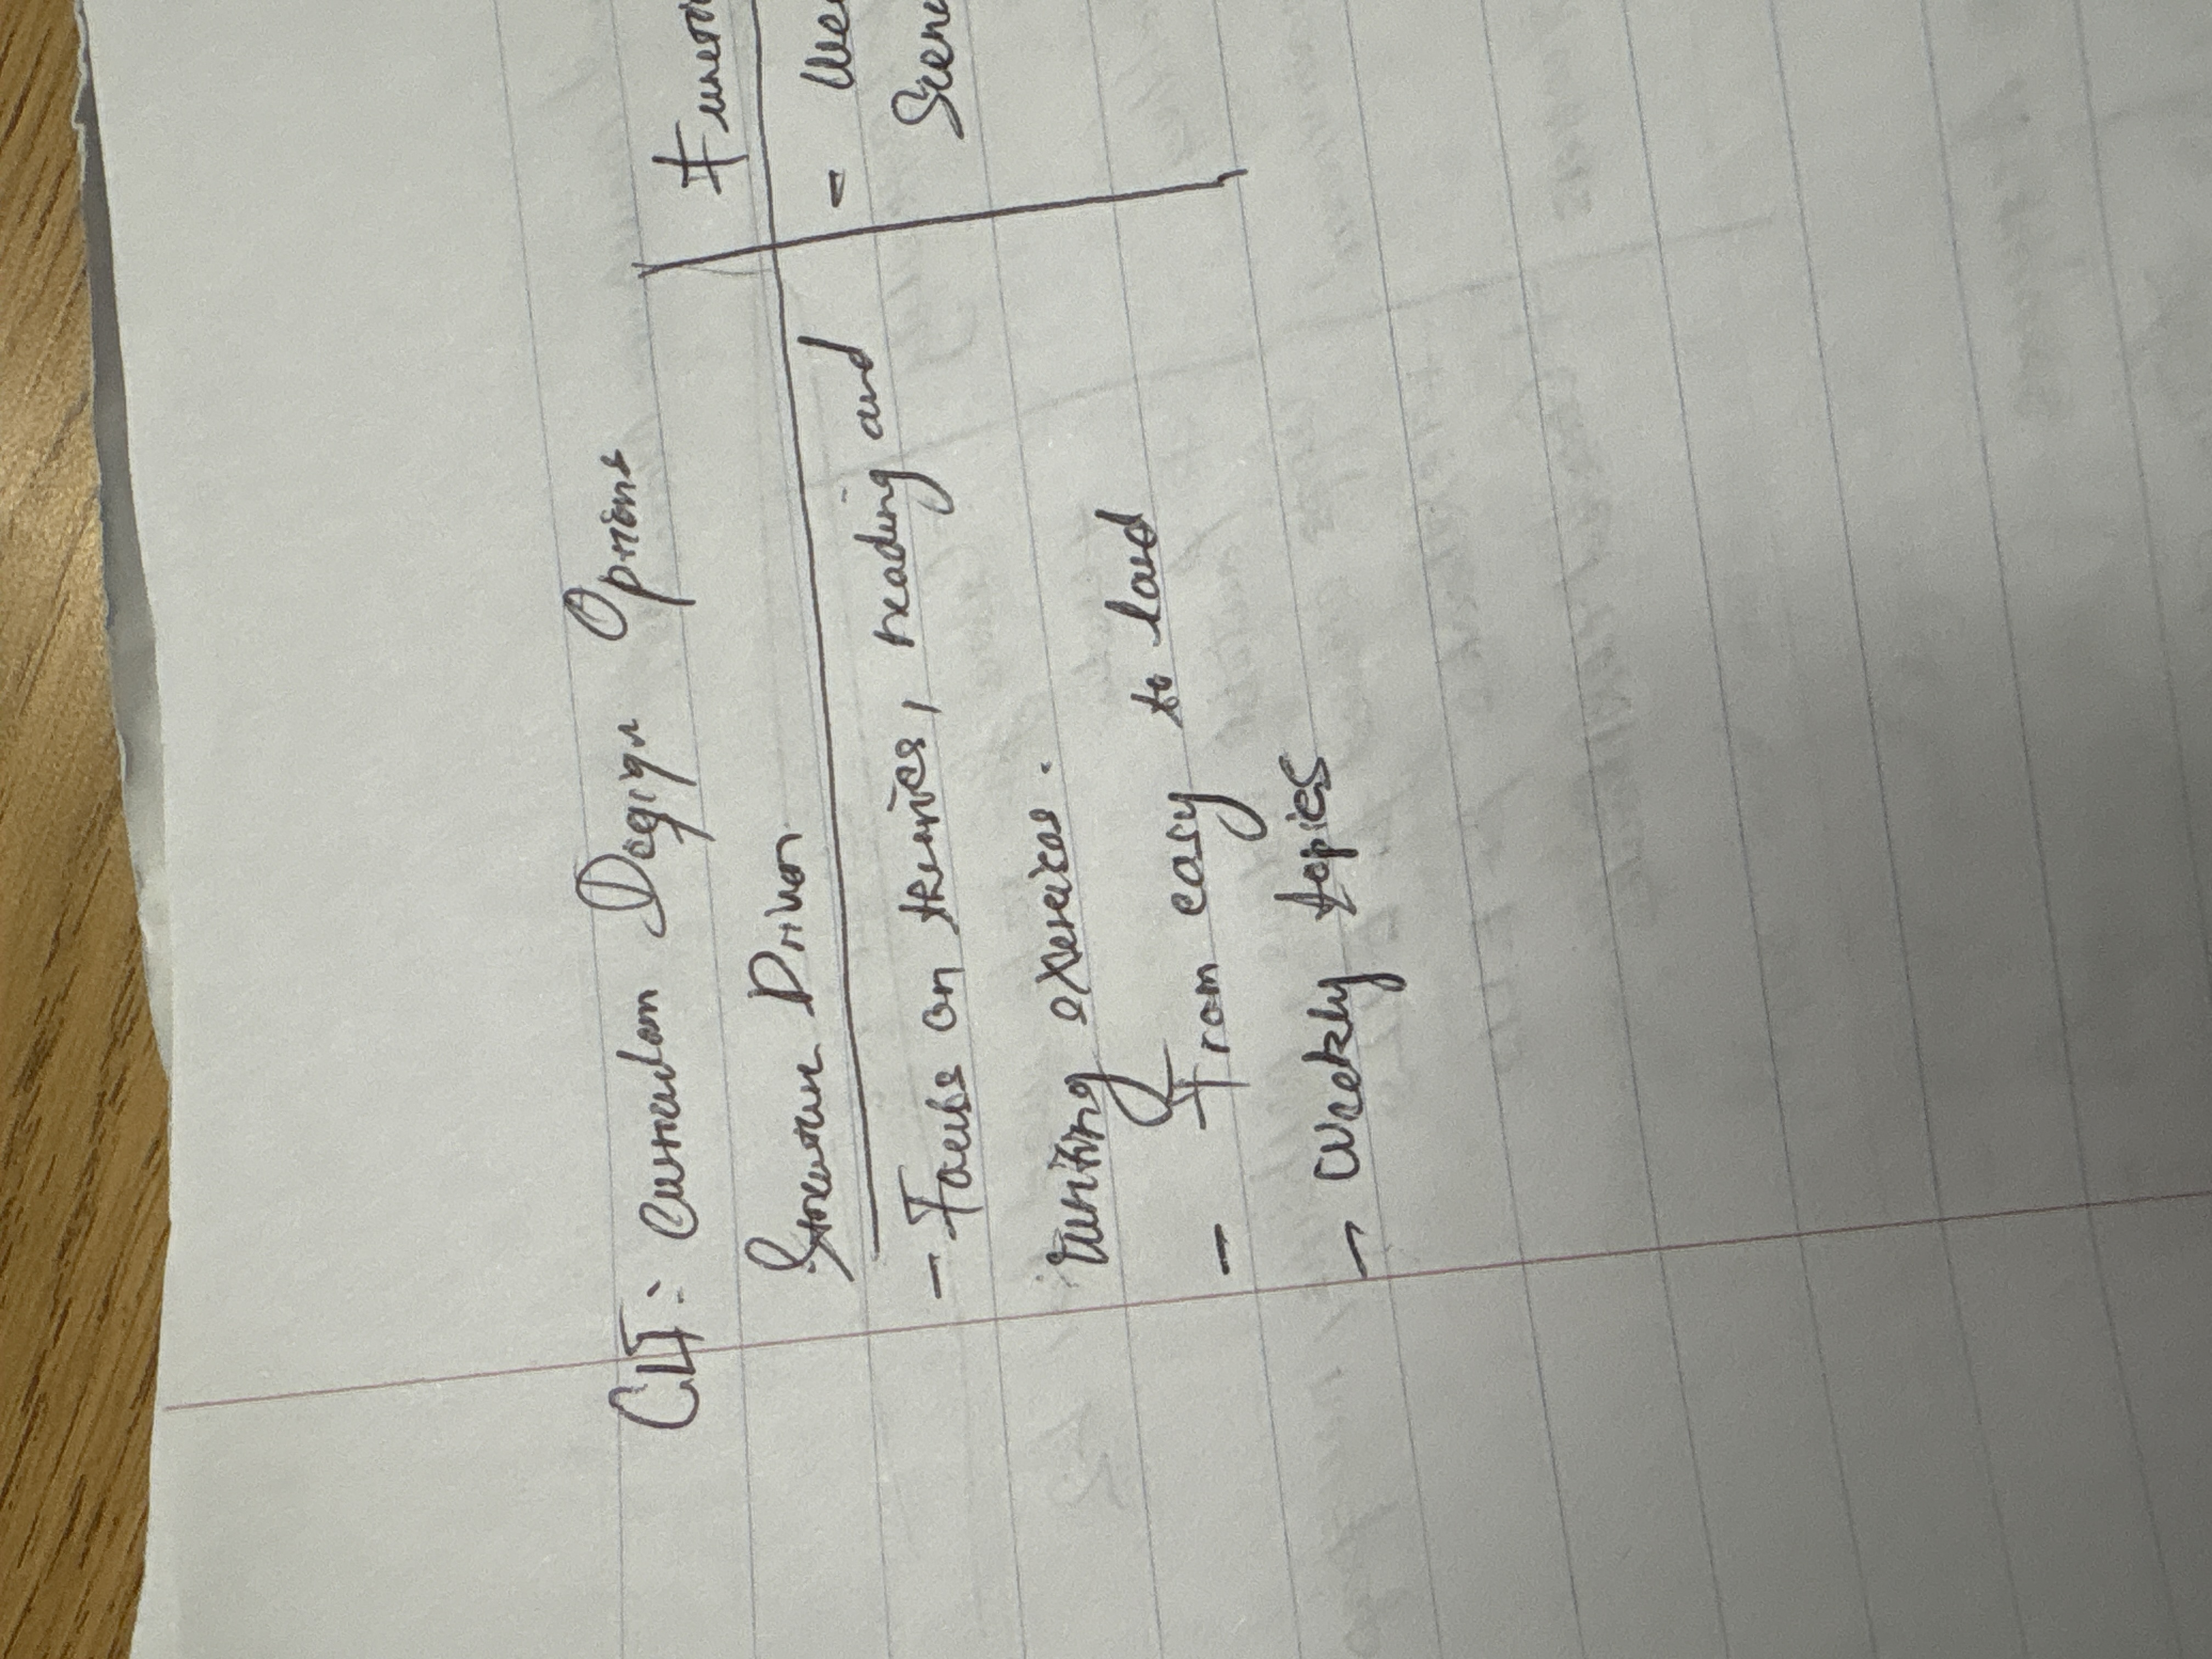 CLT: Curriculum Design Options
Structure Driven
- Focus on themes, reading and
writing exercises.
- From easy to hard
- weekly topics